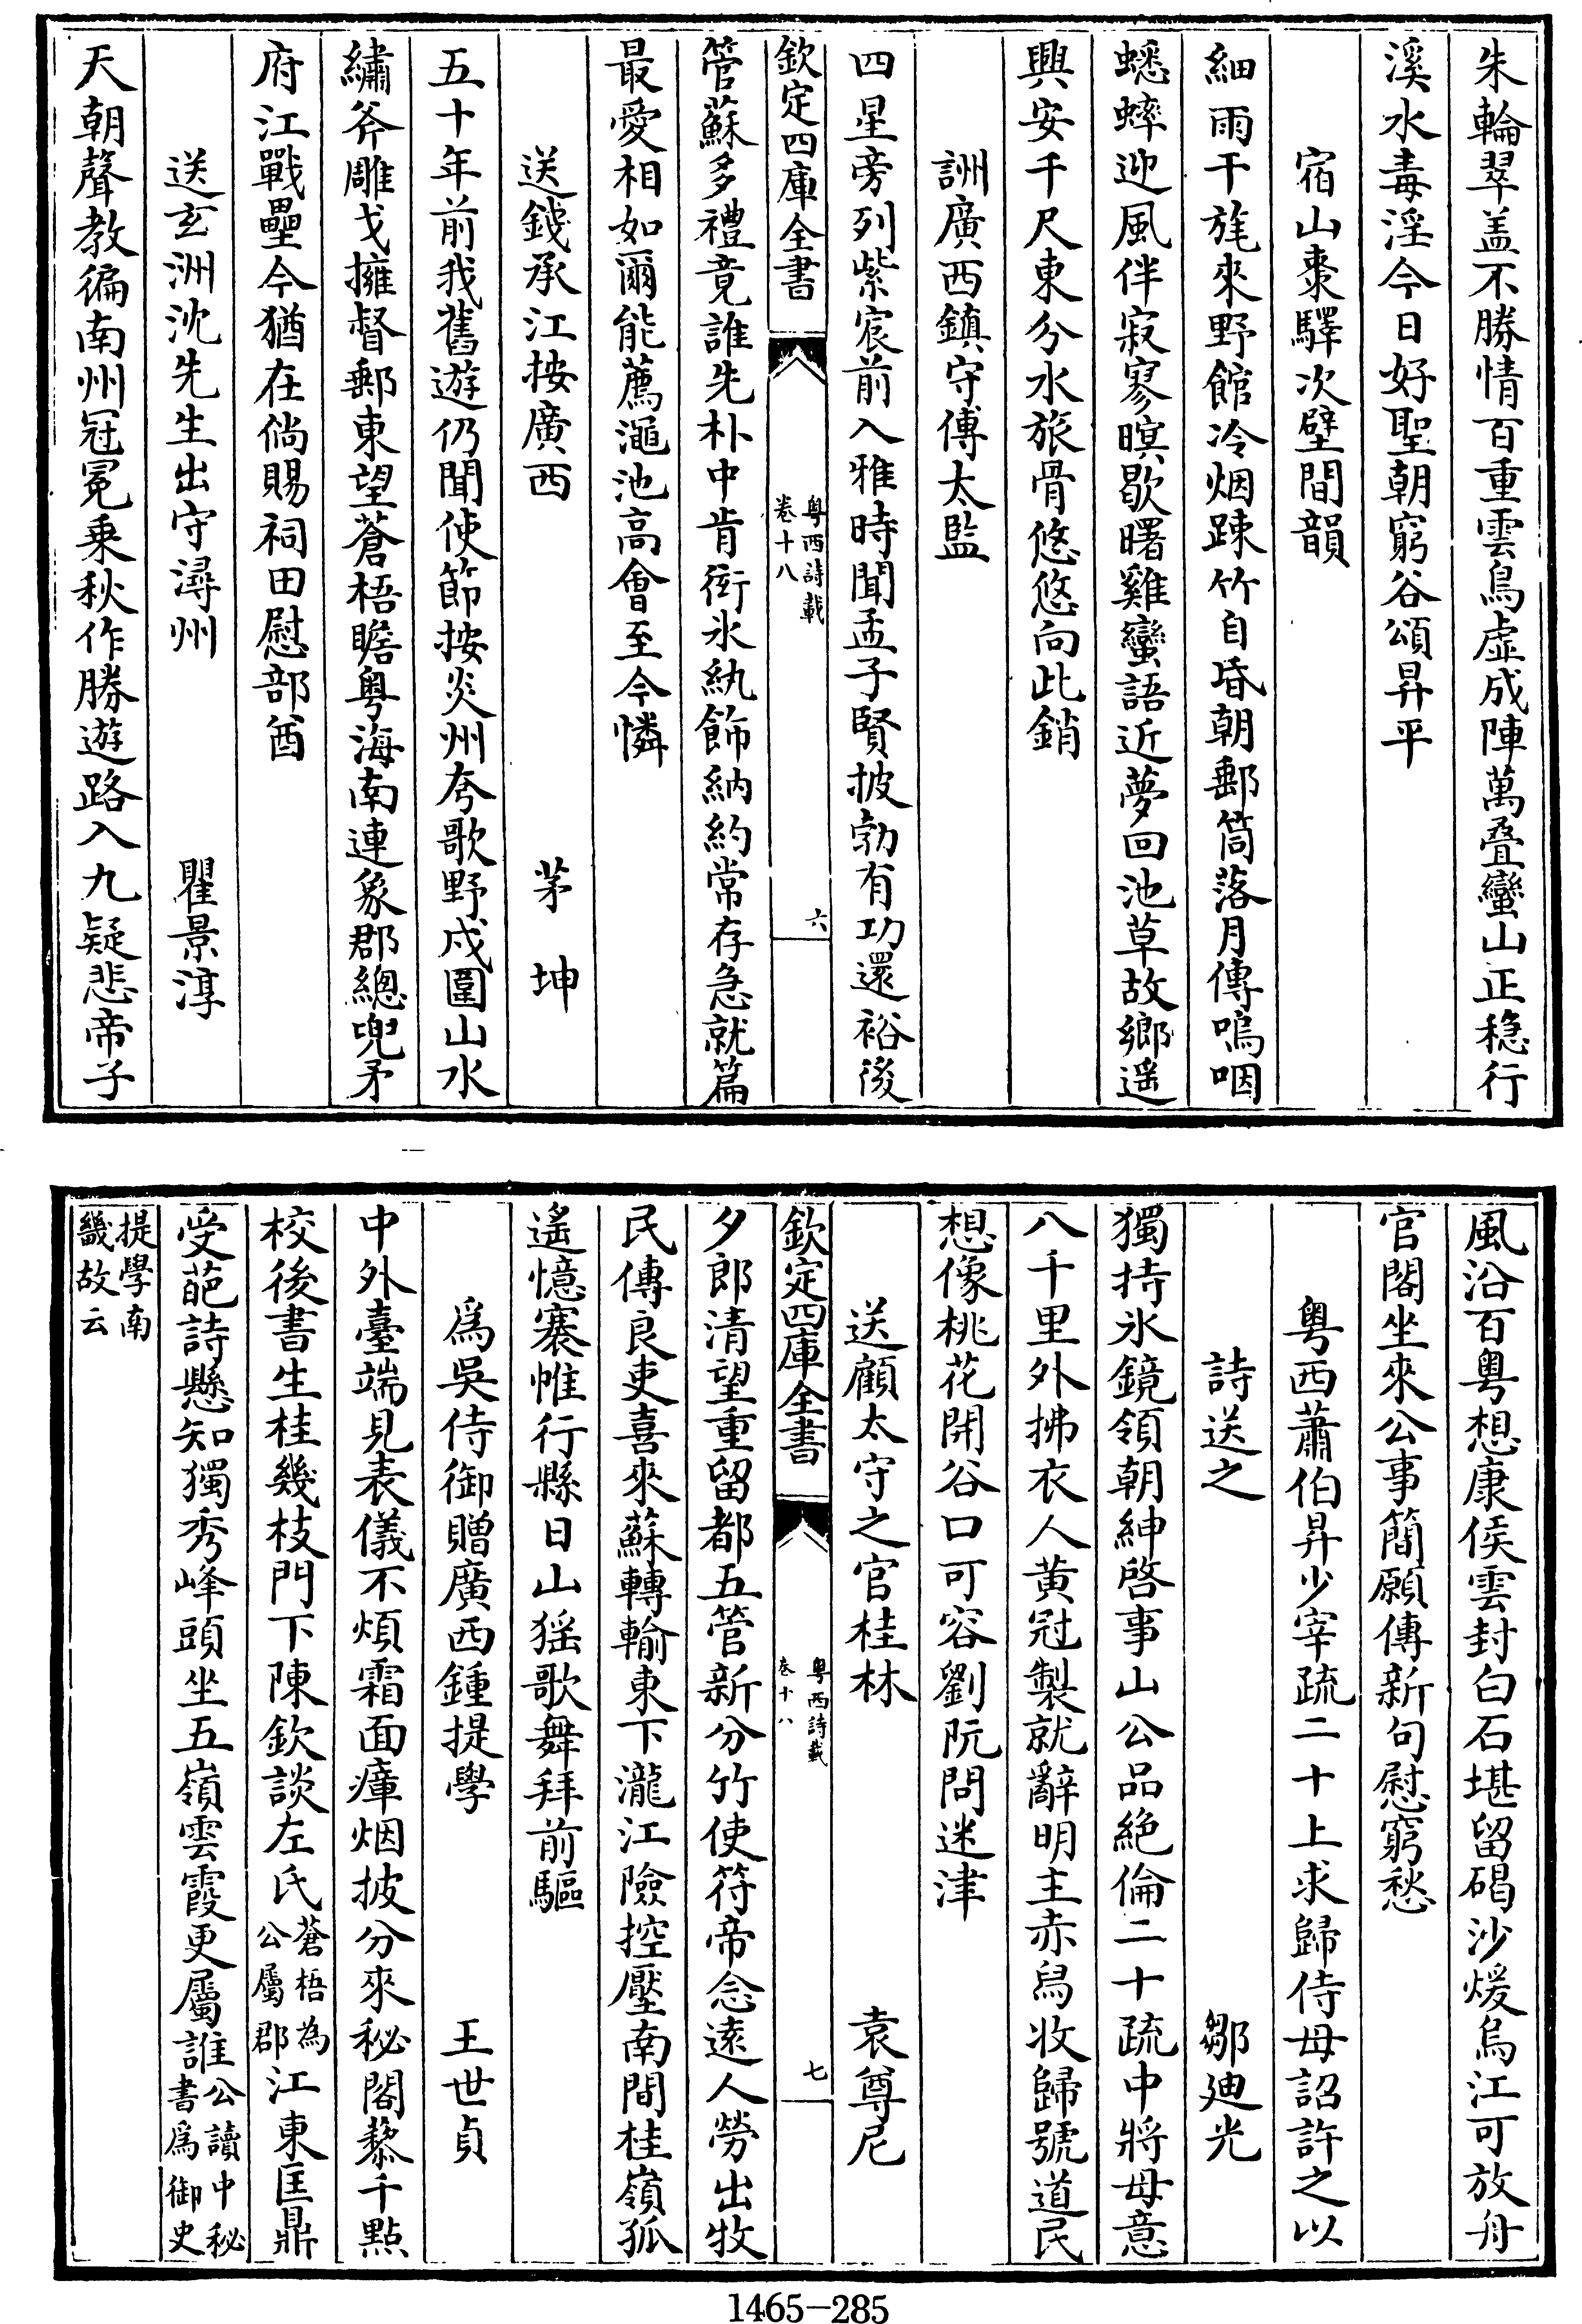 朱輪翠盖不勝情百重雲鳥虛成陣萬疊蠻山正穏行
溪水毒淫今日好聖朝窮谷頌昇平
宿山棗驛次壁間韻
細雨干旄來野館冷烟踈竹自昏朝郵筒落月傳嗚咽
蟋蟀迎風伴寂寥暝歇曙雞蠻語近夢回池草故鄉遥
興安千尺東分水旅骨悠悠向此銷
詶廣西鎮守傅太監
四星旁列紫宸前入雅時聞孟子賢披勃有功還裕後
欽定四庫全書
粤西詩載
卷十八
六
管蘇多禮竟誰先朴中肯衒氷紈飾納約常存急就篇
最愛相如爾能薦澠池高會至今憐
送錢承江按廣西 茅坤
五十年前我舊遊仍聞使節按炎州夸歌野戍圍山水
繡斧雕戈擁督郵東望蒼梧瞻粤海南連象郡總兜矛
府江戰壘今猶在倘賜祠田慰部酋
送玄洲沈先生出守潯州 瞿景淳
天朝聲教徧南州冠冕乗秋作勝遊路入九疑悲帝子
風沿百粤想康侯雲封白石堪留碣沙煖烏江可放舟
官閣坐來公事簡願傳新句慰窮愁
粤西蕭伯昇少宰疏二十上求歸侍母詔許之以
詩送之 鄒廸光
獨持氷鏡領朝紳啓事山公品絶倫二十疏中將母意
八千里外拂衣人黄冠製就辭明主赤舄收歸號道民
想像桃花開谷口可容劉阮問迷津
送顧太守之官桂林 袁尊尼
欽定四庫全書
粤西詩載
卷十八
七
夕郎清望重留都五管新分竹使符帝念遠人勞出牧
民傳良吏喜來蘇轉輸東下瀧江險控壓南間桂嶺孤
遥憶褰帷行縣日山猺歌舞拜前驅
爲吳侍御贈廣西鍾提學 王世貞
中外臺端見表儀不煩霜面瘴烟披分來秘閣藜千點
校後書生桂幾枝門下陳欽談左氏蒼梧為公屬郡江東匡鼎
受葩詩懸知獨秀峰頭坐五嶺雲霞更屬誰公讀中秘書爲御史
提學南畿故云
1465-285